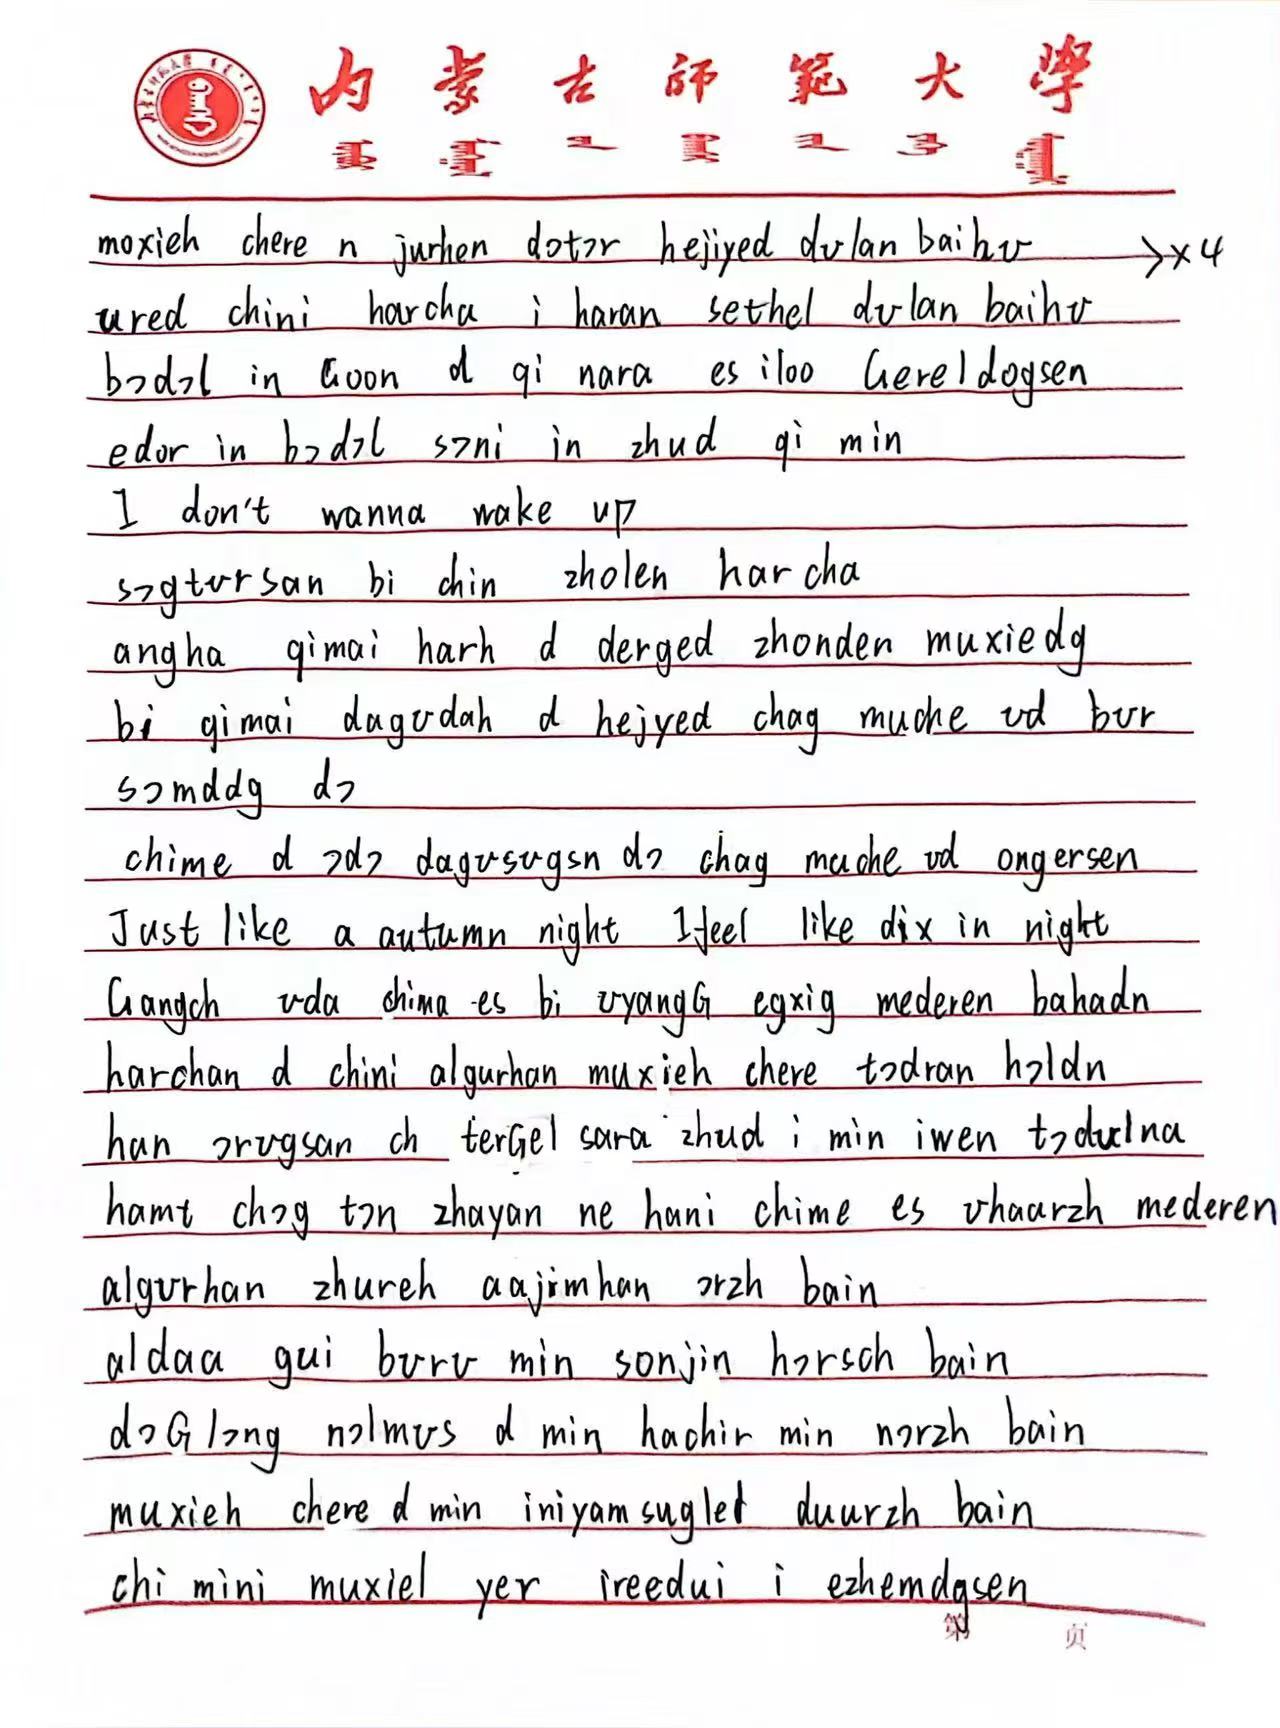 内蒙古師範大學
moxieh chere n jurhen dɔtɔr hejiyed dʊlan baihʊ →×4
ured chini harcha i haran sethel dʊlan baihʊ
bɔdɔl in Goon d qi nara es iloo Gereldogsen
edor in bɔdɔl sɔni in zhud qi min
I don't wanna wake up
sɔgtʊrsan bi chin zholen harcha
angha qimai harh d derged zhonden muxiedg
bi qimai dagʊdah d hejyed chag muche ʊd bʊr
sɔmddg dɔ
chime d ɔdɔ dagʊsʊgsn dɔ chag muche ʊd ongersen
Just like a autumn night I feel like dix in night
Gangch ʊda chima es bi ʊyangG egxig mederen bahadn
harchan d chini algurhan muxieh chere tɔdran hɔldn
han ɔrʊgsan ch terGel sara zhud i min iwen tɔdulna
hamt chɔg tɔn zhayan ne hani chime es ʊhaarzh mederen
algʊrhan zhureh aajimhan ɔrzh bain
aldaa gui bʊrʊ min sonjin hɔrsch bain
dɔGlɔng nɔlmʊs d min hachir min nɔrzh bain
muxieh chere d min iniyamsugled duurzh bain
chi mini muxiel yer ireedui i ezhemdgsen
第 页